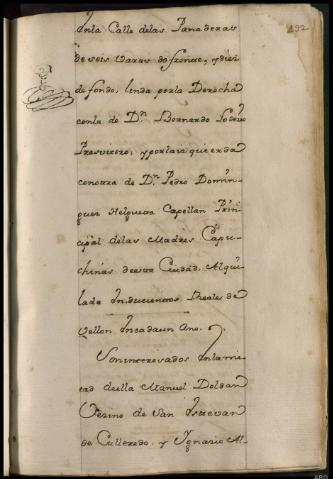 192
Inla Calle delas Panaderas
de seis Varas defrente, ydiez
de fondo, linda porla Derecha
conla de Dn. Bernardo
Presvitero, yporlaizquierda
conotra de Dn. Pedro Domin-
guez Helguera Capellan Prin-
cipal delas Madres Capu-
chinas deesta Ciudad. Alqui-
lada Induscientos Reales de
Vellon Incadaun Ano.
Soninteresados Inlami-
tad deella Manuel Doldan
Vezino de San Estevan
de Culleredo, y Ygnazio Al-